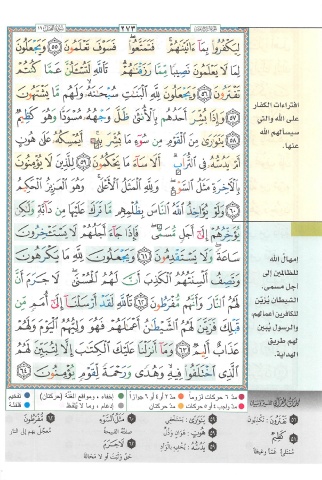 ٢٧٣
لِيَكْفُرُوا۟ بِمَآ ءَاتَيْنَٰهُمْ ۚ فَتَمَتَّعُوا۟ ۖ فَسَوْفَ تَعْلَمُونَ ٥٥ وَيَجْعَلُونَ
لِمَا لَا يَعْلَمُونَ نَصِيبًا مِّمَّا رَزَقْنَٰهُمْ ۗ تَٱللَّهِ لَتُسْـَٔلُنَّ عَمَّا كُنتُمْ
تَفْتَرُونَ ٥٦ وَيَجْعَلُونَ لِلَّهِ ٱلْبَنَٰتِ سُبْحَٰنَهُۥ ۙ وَلَهُم مَّا يَشْتَهُونَ
٥٧ وَإِذَا بُشِّرَ أَحَدُهُم بِٱلْأُنثَىٰ ظَلَّ وَجْهُهُۥ مُسْوَدًّا وَهُوَ كَظِيمٌ
٥٨ يَتَوَٰرَىٰ مِنَ ٱلْقَوْمِ مِن سُوٓءِ مَا بُشِّرَ بِهِۦٓ ۚ أَيُمْسِكُهُۥ عَلَىٰ هُونٍ
أَمْ يَدُسُّهُۥ فِى ٱلتُّرَابِ ۗ أَلَا سَآءَ مَا يَحْكُمُونَ ٥٩ لِلَّذِينَ لَا يُؤْمِنُونَ
بِٱلْءَاخِرَةِ مَثَلُ ٱلسَّوْءِ ۖ وَلِلَّهِ ٱلْمَثَلُ ٱلْأَعْلَىٰ ۚ وَهُوَ ٱلْعَزِيزُ ٱلْحَكِيمُ
٦٠ وَلَوْ يُؤَاخِذُ ٱللَّهُ ٱلنَّاسَ بِظُلْمِهِم مَّا تَرَكَ عَلَيْهَا مِن دَآبَّةٍ وَلَٰكِن
يُؤَخِّرُهُمْ إِلَىٰٓ أَجَلٍ مُّسَمًّى ۖ فَإِذَا جَآءَ أَجَلُهُمْ لَا يَسْتَـْٔخِرُونَ
سَاعَةً ۖ وَلَا يَسْتَقْدِمُونَ ٦١ وَيَجْعَلُونَ لِلَّهِ مَا يَكْرَهُونَ
وَتَصِفُ أَلْسِنَتُهُمُ ٱلْكَذِبَ أَنَّ لَهُمُ ٱلْحُسْنَىٰ ۖ لَا جَرَمَ أَنَّ
لَهُمُ ٱلنَّارَ وَأَنَّهُم مُّفْرَطُونَ ٦٢ تَٱللَّهِ لَقَدْ أَرْسَلْنَآ إِلَىٰٓ أُمَمٍ مِّن
قَبْلِكَ فَزَيَّنَ لَهُمُ ٱلشَّيْطَٰنُ أَعْمَٰلَهُمْ فَهُوَ وَلِيُّهُمُ ٱلْيَوْمَ وَلَهُمْ
عَذَابٌ أَلِيمٌ ٦٣ وَمَآ أَنزَلْنَا عَلَيْكَ ٱلْكِتَٰبَ إِلَّا لِتُبَيِّنَ لَهُمُ
ٱلَّذِى ٱخْتَلَفُوا۟ فِيهِ ۙ وَهُدًى وَرَحْمَةً لِّقَوْمٍ يُؤْمِنُونَ ٦٤
افتراءات الكفار
على الله والتي
سيسألهم الله
عنها.
إمهال الله
للظالمين إلى
أجل مسمى،
الشيطان يُزيّن
للكافرين أعمالهم،
والرسول يُبيّن
لهم طريق
الهداية.